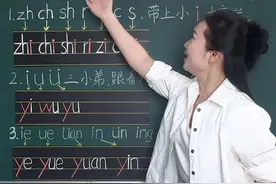 1.zh ch sh r z c s,带上小 i
zhi chi shi ri zi ci
2.i u ü 三小弟,跟着
yi wu yu
3.ie üe üan in ün ing
ye yue yuan yin